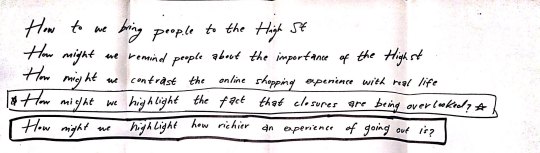 How to we bring people to the High St
How might we remind people about the importance of the High st
How might we contrast the online shopping experience with real life
* How might we highlight the fact that closures are being overlooked? *
How might we highlight how richier an experience of going out is?